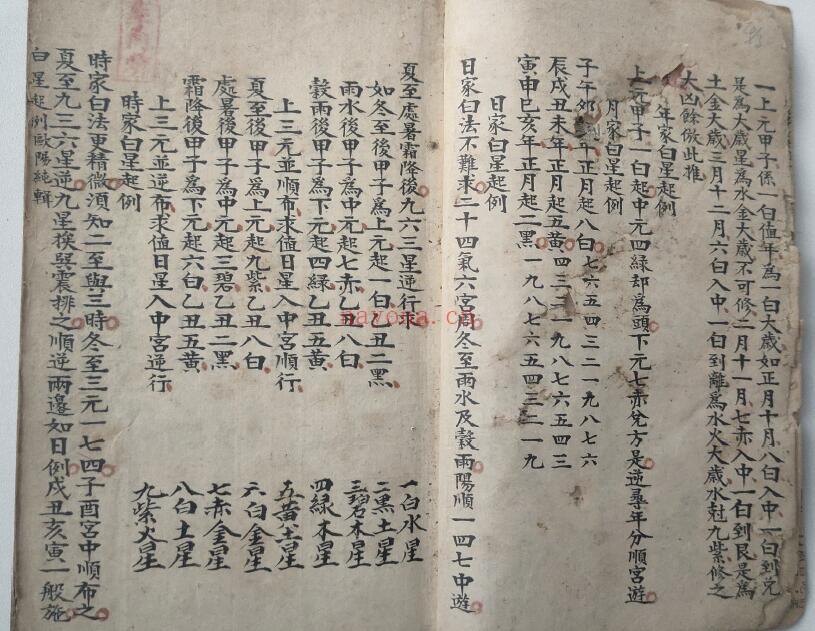 一上元甲子係一白值年為一白大歲如正月十月八白入中一白到兌
是為大歲星為水金大歲不可修二月十一月七赤入中一白到艮是為
土金大歲三月十二月六白入中一白到離為水火大歲水尅九紫修之
大凶餘倣此推
年家白星起例
上元甲子一白起中元四緑却為頭下元七赤兌方是逆尋年分順宮遊
月家白星起例
子午卯年正月起八白七六五四三二一九八七六
辰戌丑未年正月起五黄四三二一九八七六五四三
寅申巳亥年正月起二黑一九八七六五四三二一九
日家白星起例
日家白法不難求二十四氣六宮周冬至雨水及穀雨陽順一四七中遊
夏至處暑霜降後九六三星逆行求
如冬至後甲子為上元起一白乙丑二黑
雨水後甲子為中元起七赤乙丑八白
穀雨後甲子為下元起四緑乙丑五黄
上三元並順布求值日星入中宮順行
夏至後甲子為上元起九紫乙丑八白
處暑後甲子為中元起三碧乙丑二黑
霜降後甲子為下元起六白乙丑五黄
上三元並逆布求值日星入中宮逆行
一白水星
二黑土星
三碧木星
四緑木星
五黄土星
六白金星
七赤金星
八白土星
九紫火星
時家白星起例
時家白法更精微須知二至與三時冬至三元一七四子酉宮中順布之
夏至九三六星逆九星挨巽震排之順逆兩邊如日例戌丑亥寅一般施
白星起例歐陽純輯
nayona.cn